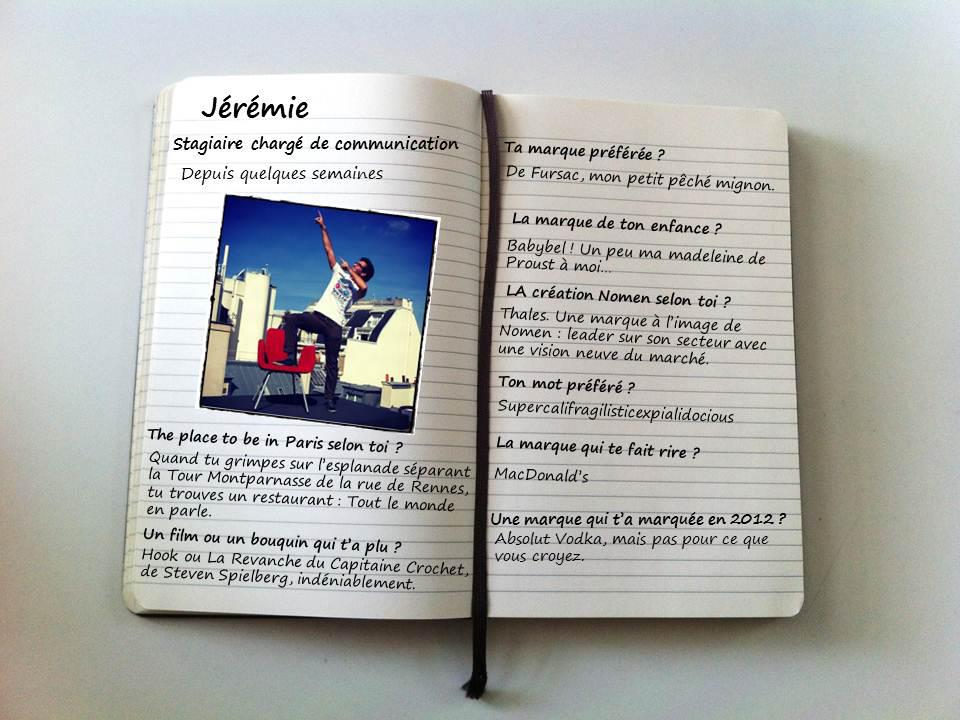 Jérémie
Stagiaire chargé de communication
Depuis quelques semaines
The place to be in Paris selon toi ?
Quand tu grimpes sur l'esplanade séparant
la Tour Montparnasse de la rue de Rennes,
tu trouves un restaurant : Tout le monde
en parle.
Un film ou un bouquin qui t'a plu ?
Hook ou La Revanche du Capitaine Crochet,
de Steven Spielberg, indéniablement.
Ta marque préférée ?
De Fursac, mon petit pêché mignon.
La marque de ton enfance ?
Babybel ! Un peu ma madeleine de
Proust à moi...
LA création Nomen selon toi ?
Thales. Une marque à l'image de
Nomen : leader sur son secteur avec
une vision neuve du marché.
Ton mot préféré ?
Supercalifragilisticexpialidocious
La marque qui te fait rire ?
MacDonald's
Une marque qui t'a marquée en 2012 ?
Absolut Vodka, mais pas pour ce que
vous croyez.